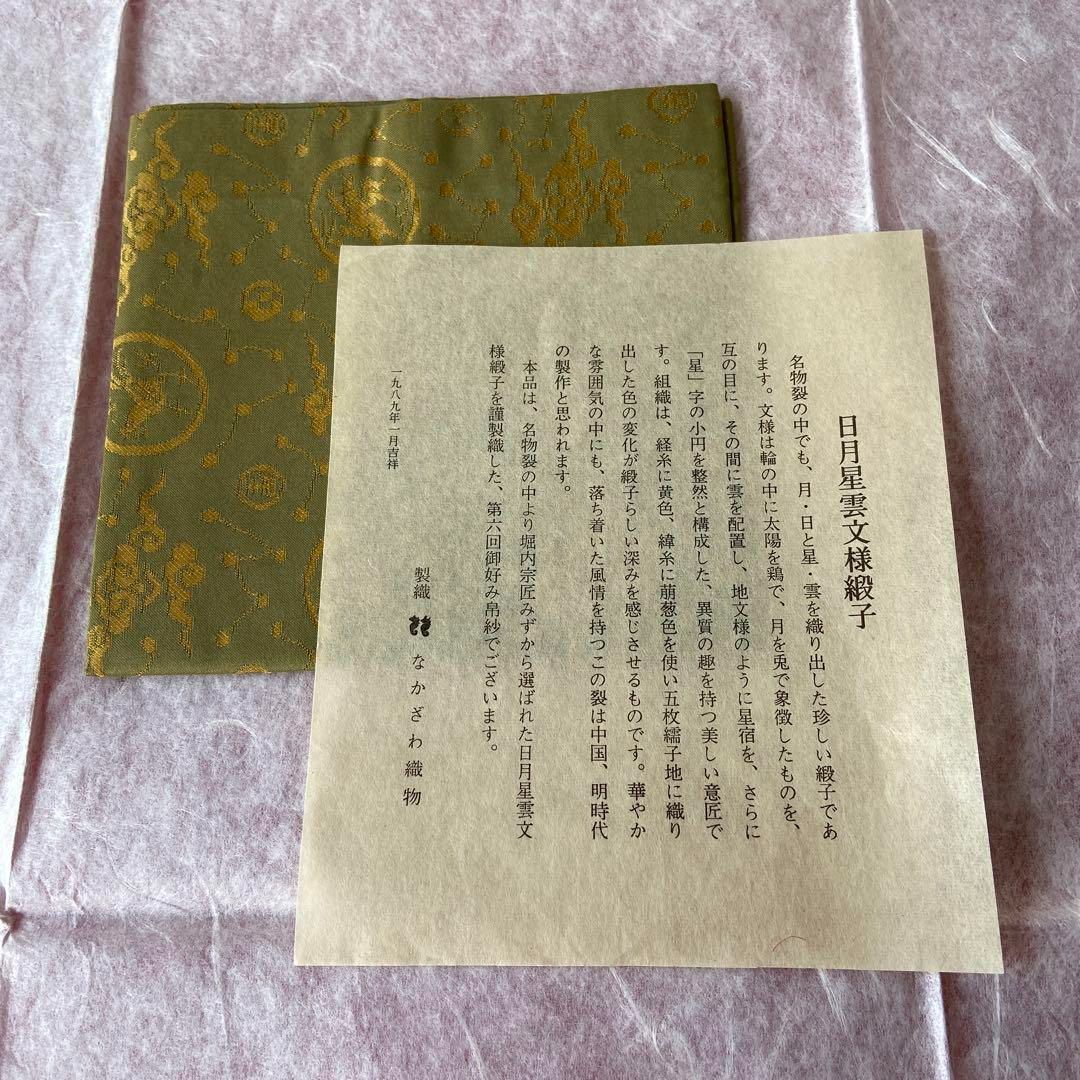 日月星雲文様緞子
名物裂の中でも、月・日と星・雲を織り出した珍しい緞子であ
ります。文様は輪の中に太陽を鶏で、月を兎で象徴したものを、
互の目に、その間に雲を配置し、地文様のように星宿を、さらに
「星」字の小円を整然と構成した、異質の趣を持つ美しい意匠で
す。組織は、経糸に黄色、緯糸に萌葱色を使い五枚繻子地に織り
出した色の変化が緞子らしい深みを感じさせるものです。華やか
な雰囲気の中にも、落ち着いた風情を持つこの裂は中国、明時代
の製作と思われます。
本品は、名物裂の中より堀内宗匠みずから選ばれた日月星雲文
様緞子を謹製織した、第六回御好み帛紗でございます。
製織 なかざわ織物
一九八九年一月吉祥